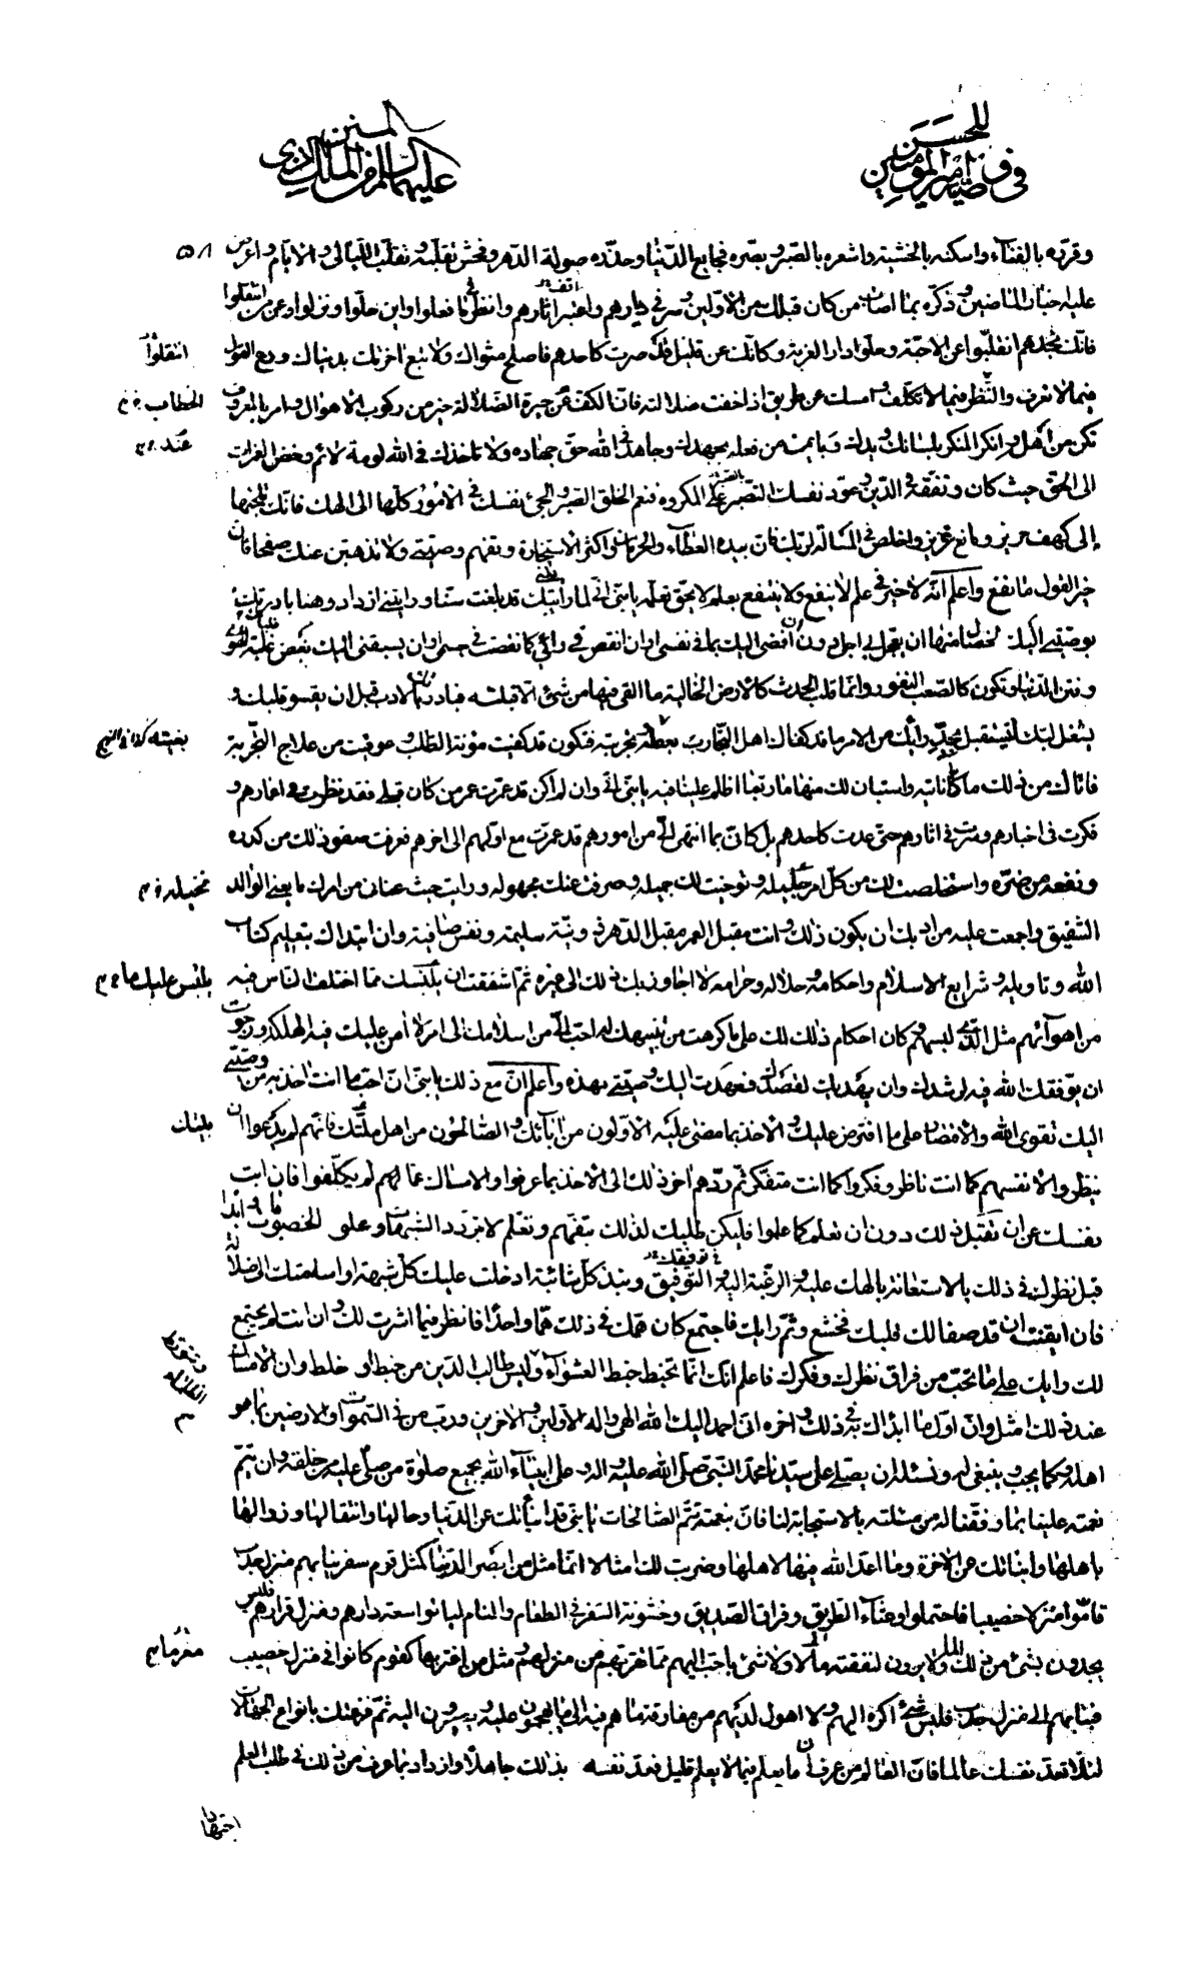 في وصية أمير المؤمنين للحسن
عليهما السلم
وقرره بالفناء واسكنه بالخشية واشعره بالصبر وبصره فجايع الدنيا وحذره صولة الدهر وفحش تقلبه وتقلب الليالي والايام واعرض
عليه اخبار الماضين وذكره بما اصاب من كان قبلك من الاولين وسر في ديارهم واعتبر اثارهم وانظر ما فعلوا واين حلوا ونزلوا وعمن انتقلوا
فانك تجدهم انقلبوا عن الاحبة وحلوا دار الغربة وكانك عن قليل قد صرت كاحدهم فاصلح مثواك ولا تبع اخرتك بدنياك ودع القول
فيما لا تعرف والنظر فيما لا تكلف وامسك عن طريق اذا خفت ضلالته فان الكف عن حيرة الضلالة خير من ركوب الاهوال وامر بالمعروف
تكن من اهله وانكر المنكر بلسانك ويدك وباين من فعله بجهدك وجاهد في الله حق جهاده ولا تاخذك في الله لومة لائم وخض الغمرات
الى الحق حيث كان وتفقه في الدين وعود نفسك التصبر على المكروه فنعم الخلق الصبر والجئ نفسك في الامور كلها الى الهك فانك تلجئها
إلى كهف حريز ومانع عزيز واخلص في المسالة لربك فان بيده العطاء والحرمان واكثر الاستخارة وتفهم وصيتي ولا تذهبن عنك صفحا فان
خير القول ما نفع واعلم انه لا خير في علم لا ينفع ولا ينتفع بعلم لا يحق تعلمه يا بني اني لما رايتك قد بلغت سنا ورايتني ازداد وهنا بادرت
بوصيتي اليك لخصال منها ان يعجل بي اجلي دون ان افضي اليك بما في نفسي او ان انقص في رائي كما نقصت في جسمي او ان يسبقني اليك بعض غلبة الهوى
وفتن الدنيا وتكون كالصعب النفور وانما قلب الحدث كالارض الخالية ما القي فيها من شيء الا قبلته فبادرتك بالادب قبل ان يقسو قلبك و
يشغل لبك لتستقبل بجد رايك من الامر ما قد كفاك اهل التجارب بغيته وتجربته فتكون قد كفيت مؤنة الطلب وعوفيت من علاج التجربة
فاتاك من ذلك ما كنا ناتيه واستبان لك منها ما ربما اظلم علينا فيه يا بني اني وان لم اكن قد عمرت عمر من كان قبلي فقد نظرت في اعمارهم و
فكرت في اخبارهم وسرت في اثارهم حتى عدت كاحدهم بل كاني بما انتهى الي من امورهم قد عمرت مع اولهم الى اخرهم فعرفت صفو ذلك من كدره
ونفعه من ضره واستخلصت لك من كل امر جليله وتوخيت لك جميله وصرفت عنك مجهوله ورايت حيث عناني من امرك ما يعني الوالد
الشفيق واجمعت عليه من ادبك ان يكون ذلك وانت مقبل العمر مقبل الدهر ذو نية سليمة ونفس صافية وان ابتداك بتعليم كتاب
الله وتاويله وشرايع الاسلام واحكامه وحلاله وحرامه لا اجاوز بك ذلك الى غيره ثم اشفقت ان يلبسك مما اختلف الناس فيه
من اهوائهم مثل الذي لبسهم وكان احكام ذلك لك على ما كرهت من تنبيهك له احب الي من اسلامك الى امر لا امن عليك فيه الهلكة ورجوت
ان يوفقك الله فيه لرشدك وان يهديك لقصدك فعهدت اليك وصيتي بهذه واعلم ان مع ذلك يا بني ان احب ما انت اخذ به من وصيتي
اليك تقوى الله والاقتصار على ما افترض عليك والاخذ بما مضى عليه الاولون من ابائك والصالحون من اهل ملتك فانهم لم يدعوا ان
ينظروا لانفسهم كما انت ناظر وفكروا كما انت متفكر ثم ردهم اخر ذلك الى الاخذ بما عرفوا والامساك عما لم يكلفوا فان ابت
نفسك عن ان تقبل ذلك دون ان تعلم كما علموا فليكن طلبك لذلك بتفهم وتعلم لا بتورد الشبهات وعلو الخصومات وابدا
قبل نظرك في ذلك بالاستعانة بالهك عليه والرغبة اليه في التوفيق ونبذ كل شائبة ادخلت عليك كل شبهة او اسلمتك الى ضلالة
فان ايقنت ان قد صفا لك قلبك فخشع وتم رايك فاجتمع كان همك في ذلك هما واحدا فانظر فيما فسرت لك وان انت لم يجتمع
لك رايك على ما تحب من فراق نظرك وفكرك فاعلم انك انما تخبط خبط العشواء وليس طالب الدين من خبط او خلط وان الامساك
عند ذلك امثل وان اول ما ابداك به في ذلك واخره اني احمد اليك الله الهي واله الاولين والاخرين ورب من في السموات والارضين بما هو
اهله وكما يجب وينبغي له ونسئله ان يصلي على سيدنا محمد النبي صلى الله عليه واله وعلى انبياء الله بجميع صلوة من صلى عليه من خلقه وان يتم
نعمته علينا بما وفقنا له من مسئلته بالاستجابة لنا فان بنعمته تتم الصالحات يا بني قد انبأتك عن الدنيا وحالها وانتقالها وزوالها
باهلها وانبأتك عن الاخرة وما اعد الله فيها لاهلها وضربت لك امثالا انما مثل من ابصر الدنيا كمثل قوم سفر نبا بهم منزل جدب
فاموا منزلا خصيبا فاحتملوا وعثاء الطريق وفراق الصديق وخشونة السفر في الطعام والمنام لياتوا سعة دارهم ومنزل قرارهم فليس
يجدون بشيء من ذلك الما ولا يرون لنفقته مالا ولا شيء باحب اليهم مما يقربهم من منزلهم ومثل من اغتر بها كقوم كانوا في منزل خصيب
فنبا بهم الى منزل جدب فليس شيء اكره اليهم ولا اهول لديهم من مفارقة ما هم فيه الى ما يهجمون عليه ويصيرون اليه ثم فزعتك بانواع الجهالات
لئلا تعد نفسك عالما فان العالم من عرف ان ما يعلم فيما لا يعلم قليل فعد نفسه بذلك جاهلا وازداد بما عرف من ذلك في طلب العلم
اجتهادا
٥٨١
انتقلوا
الخطاب
عند
بغيته كذا في النهج
نخيله
يلتبس عليك
بيتك
وتتورط الظلماء
مغرما